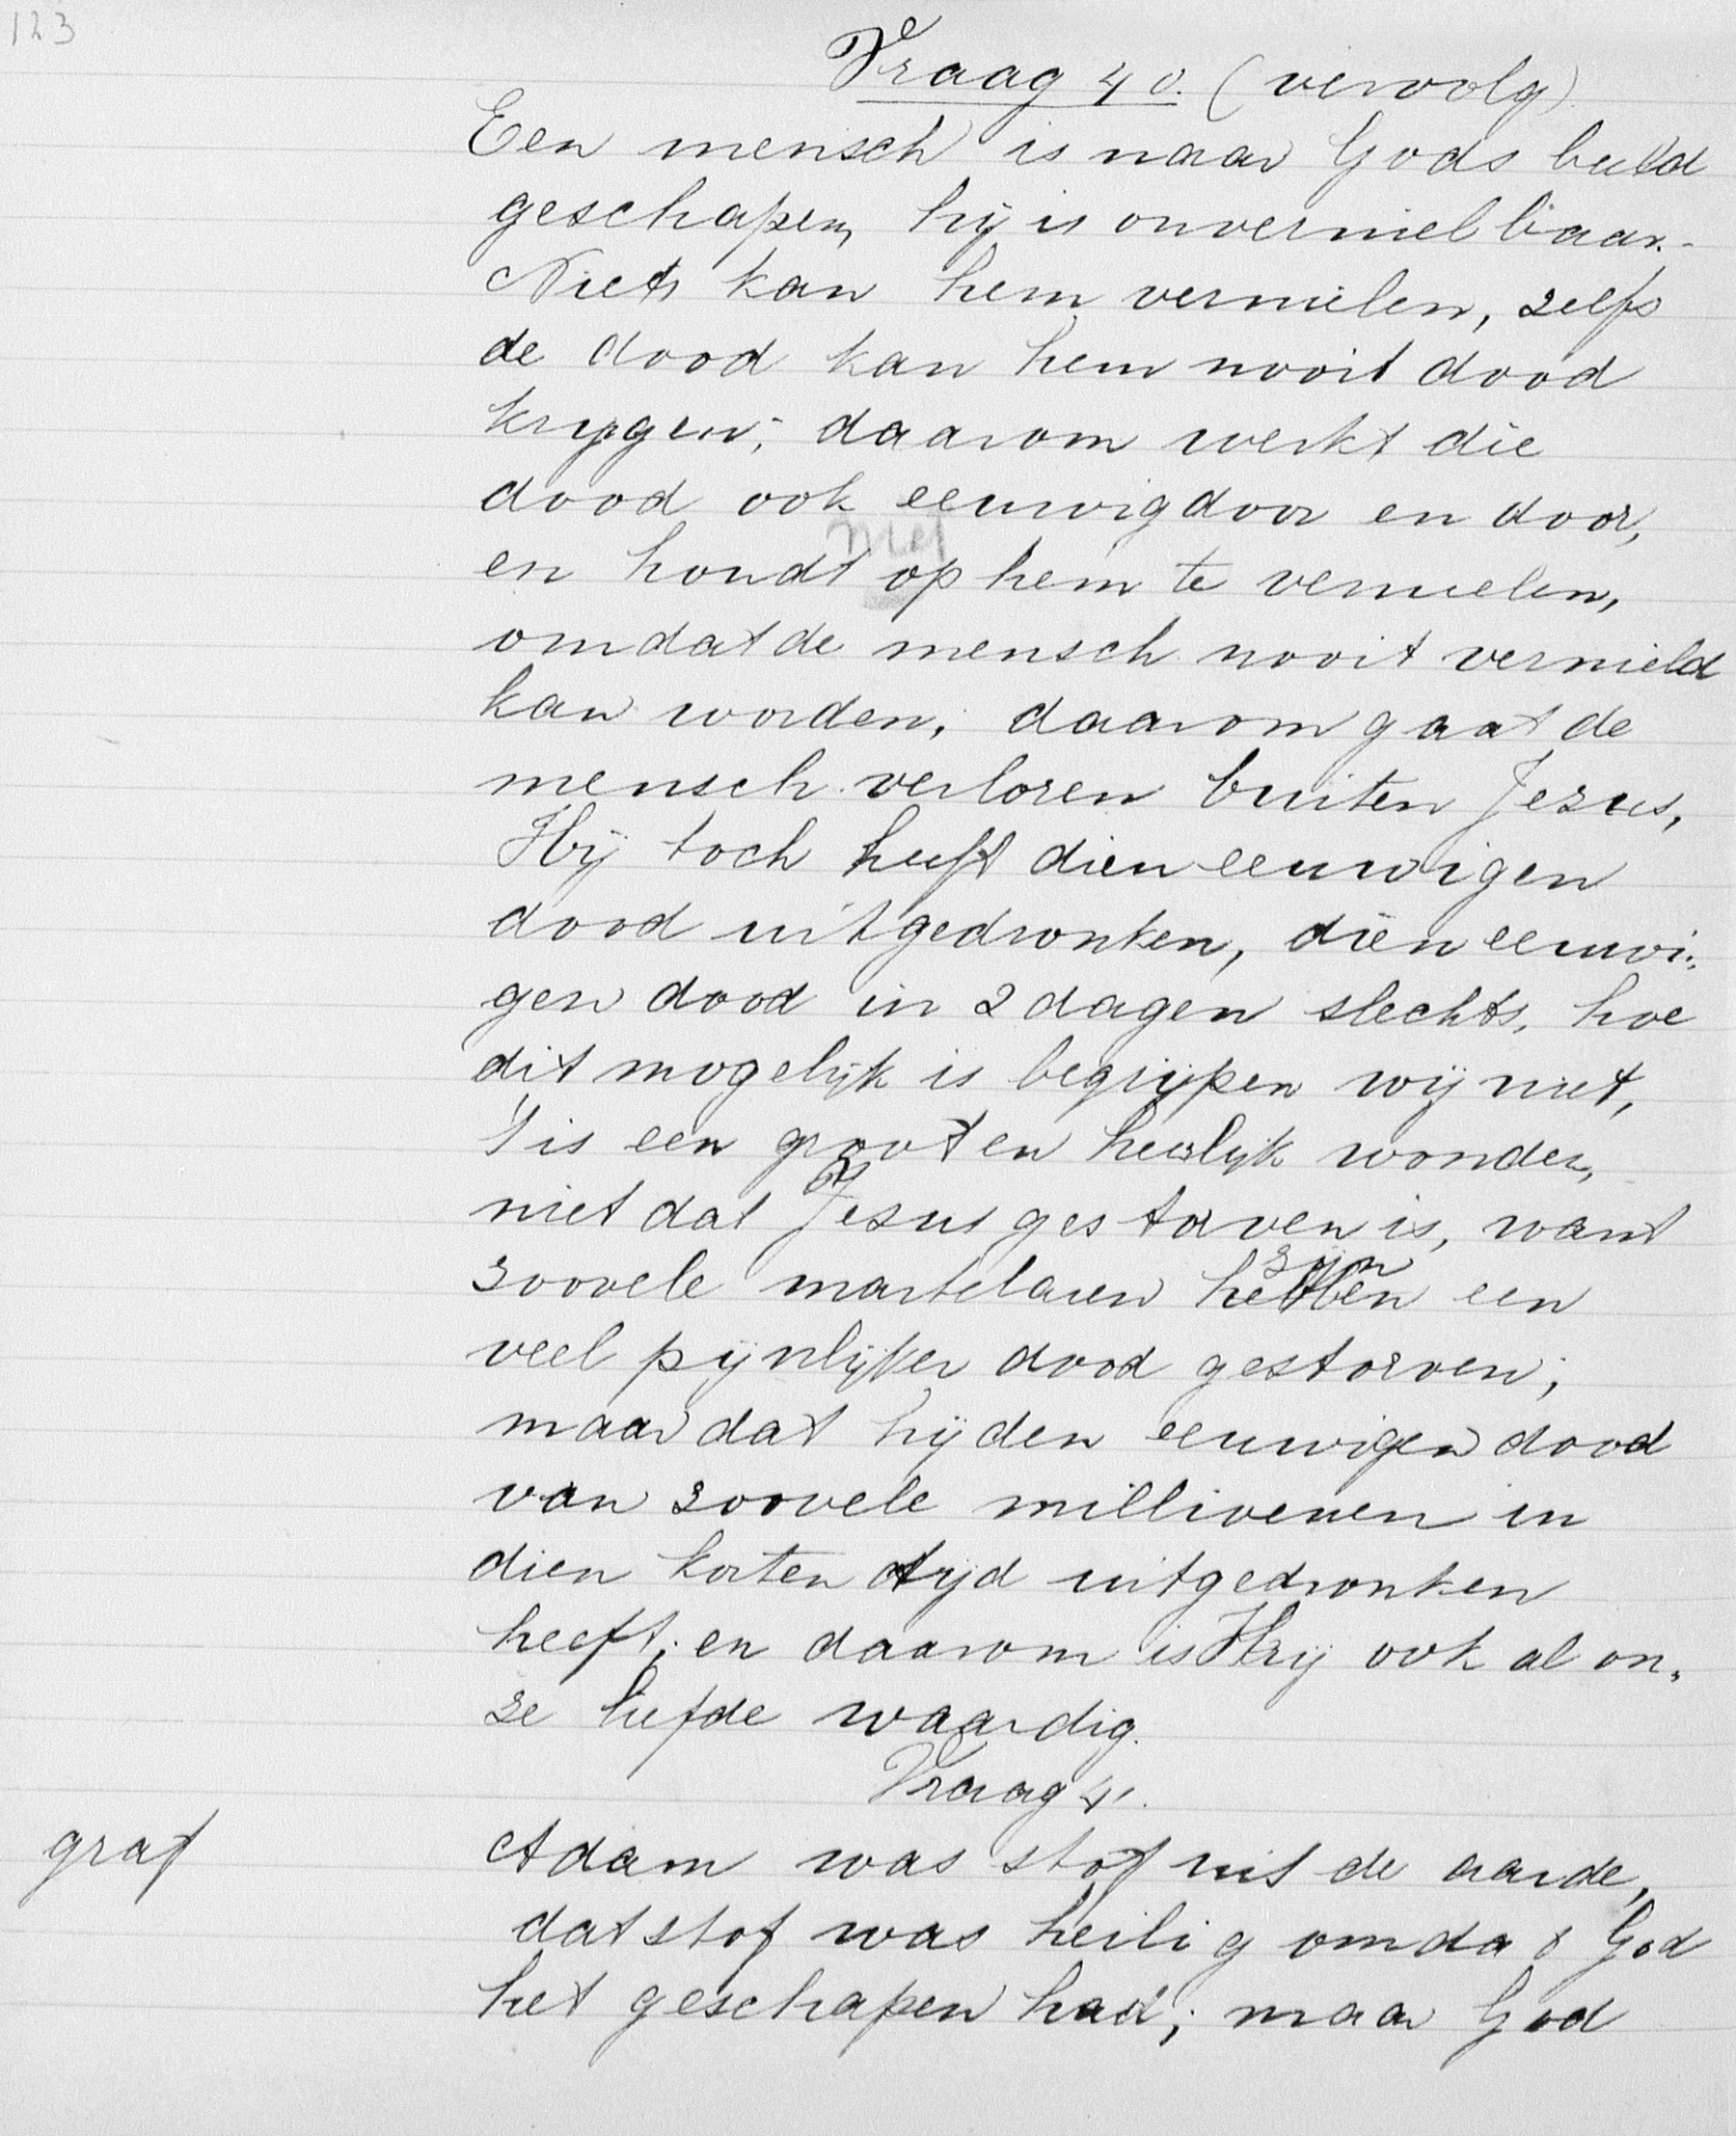 123
Vraag 40. (vervolg)
Een mensch is naar Gods beeld
geschapen, hij is onvernielbaar.-
Niets kan hem vernielen, zelfs
de dood kan hem nooit dood
krijgen; daarom werkt die
dood ook eeuwig door en door,
niet
en houdt op hem te vernielen,
omdat de mensch nooit vernield
kan worden, daarom gaat de
mensch verloren buiten Jezus,
Hij toch heeft dien eeuwigen
dood uitgedronken, dien eeuwi-
gen dood in 2 dagen slechts, hoe
dit mogelijk is begrijpen wij niet,
't is een groot en heerlijk wonder,
niet dat Jezus gestorven is, want
zijn
zoovele martelaren hebben een
veel pijnlijker dood gestorven;
maar dat hij den eeuwigen dood
van zoovele millioenen in
dien korten tijd uitgedronken
heeft; en daarom is Hij ook al on-
ze liefde waardig.
Vraag 41.
graf
Adam was stof uit de aarde,
dat stof was heilig omdat God
het geschapen had; maar God